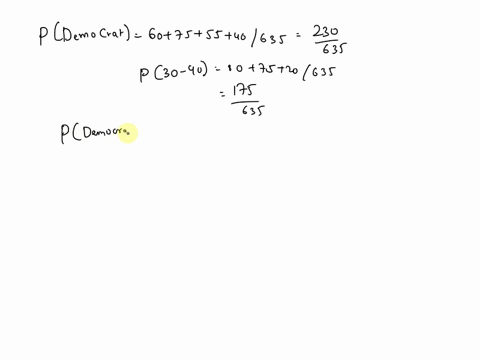 P(DemoCrat) = 60+75+55+40/635 = 230/635
P(30-40) = 80+75+20/635
= 175/635
P(Democra